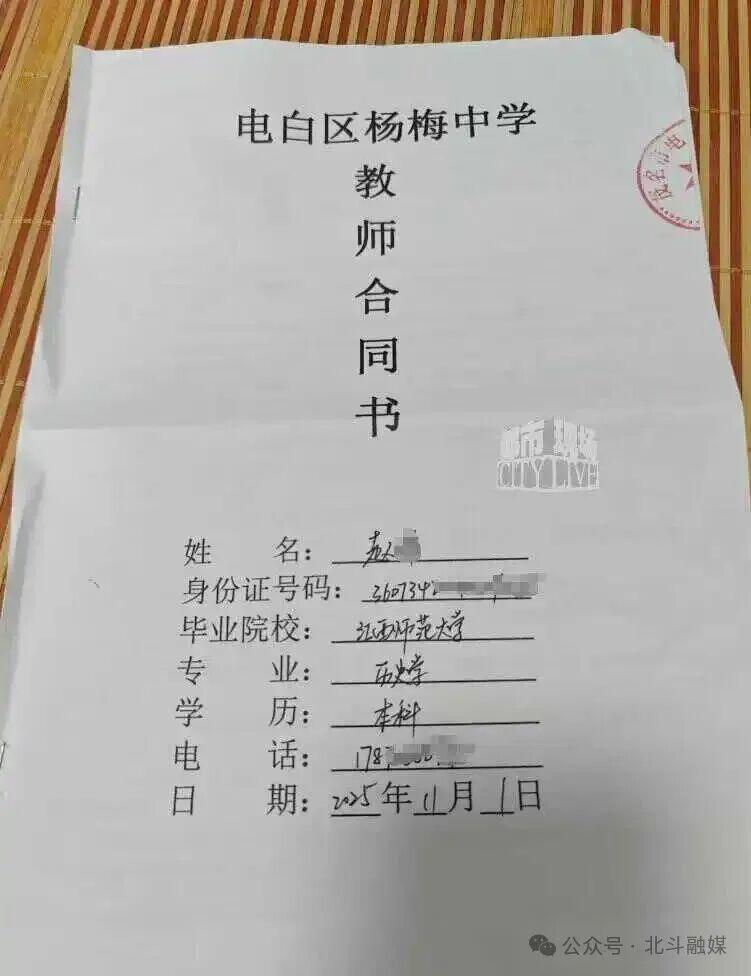 电白区杨梅中学
教
师
合
同
书
茂名市电
都市现场
CITY LIVE
姓 名：赵
身份证号码：360734
毕业院校：江西师范大学
专 业：历史学
学 历：本科
电 话：178
日 期：2025年11月1日
公众号·北斗融媒